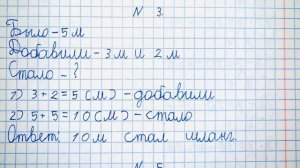 N 3.
Было - 5 м
Добавили - 3 м и 2 м
Стало - ?
1) 3 + 2 = 5 (м) - добавили
2) 5 + 5 = 10 (м) - стало
Ответ: 10 м стал шланг.
N 5